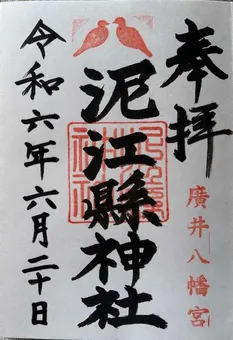 奉拝
廣井八幡宮
泥江縣神社
令和六年六月二十日